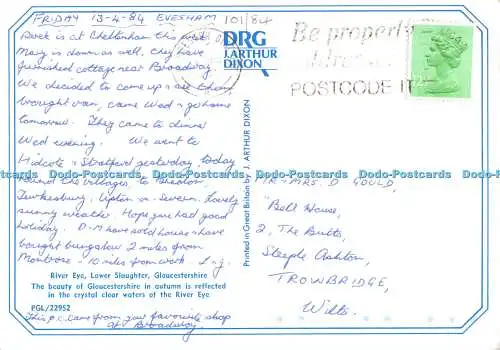 FRIDAY 13-4-84 EVESHAM 101/84
is at Cheltenham this week
Mary is down as well, they have
furnished cottage near Broadway.
We decided to come up & see them
brought van, came Wed & go home
tomorrow. They came to dinner
Wed evening. We went to
Hidcote & Stratford yesterday today
round the villages, to Bredon,
Tewkesbury, Upton on Severn. Lovely
sunny weather. Hope you had good
holiday. D-M have sold house & have
bought bungalow 2 miles from
Montrose & 10 miles from work
River Eye, Lower Slaughter, Gloucestershire
The beauty of Gloucestershire in autumn is reflected
in the crystal clear waters of the River Eye.
PGL/22952
This p.c. came from your favourite shop
at Broadway.
DRG
J.ARTHUR
DIXON
Printed in Great Britain by J. ARTHUR DIXON
Be properly
POSTCODE IT
MR & MRS. D GOULD,
"Bell House,
2, The Butts,
Steeple Ashton,
TROWBRIDGE,
Wilts.
Dodo-Postcards Dodo-Postcards Dodo-Postcards Dodo-Postcards Dodo-Postcards Dodo-Postcards